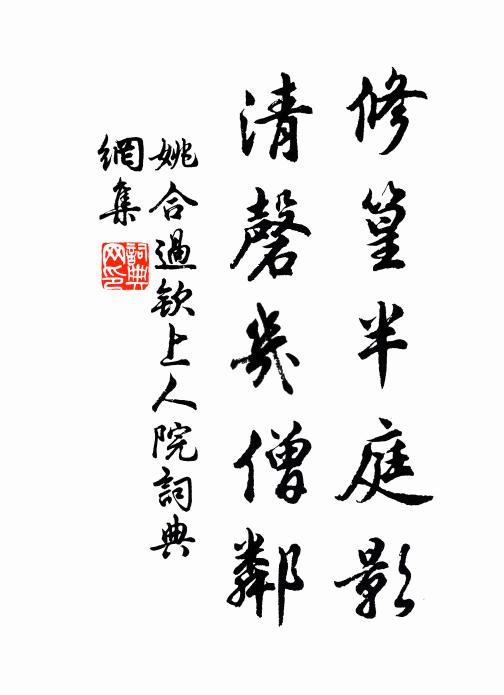 修篁半庭影
清磬幾僧鄰
姚合過欽上人院詞典
網集
詞典
网印